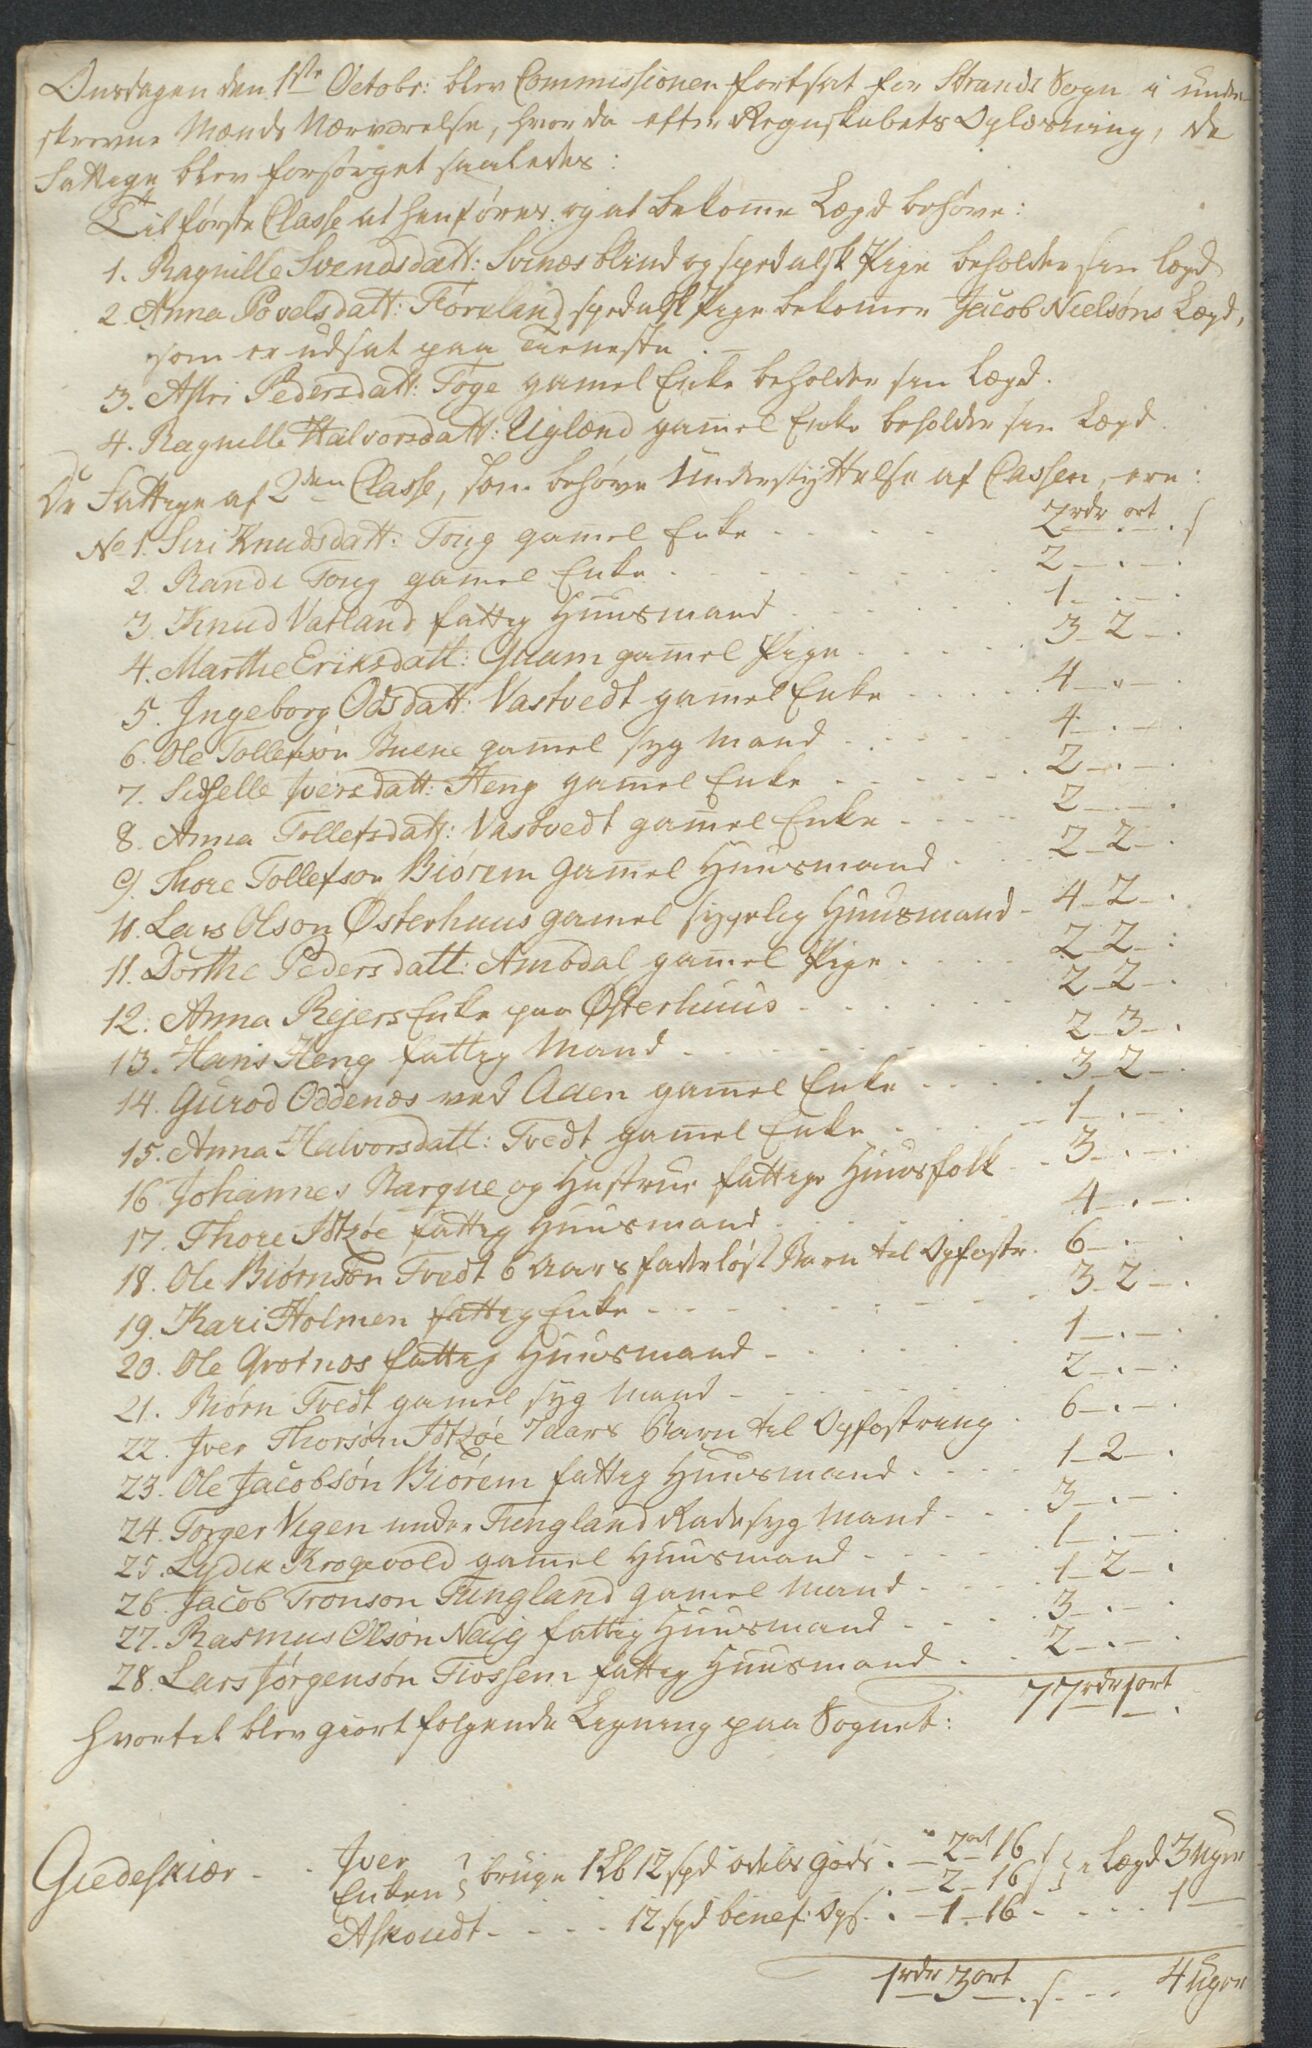 Onsdagen den 1ste Octobr: blev Commissionen fortsat for Strands Sogn i under-
skrevne Mænds Nærværelse, hvor da efter Regnskabets Oplæsning, de
Fattige blev forsørget saaledes:
Til første Classe at henføres og at bekomme Lægd behøve:
1. Ragnille Svendsdatt: Svinæs blind og spedalsk Pige beholder sin Lægd
2. Anna Povelsdatt: Fiøreland spedalsk Pige bekommer Jacob Nielsøns Lægd,
som er udsat paa Tieneste. -
3. Astri Pedersdatt: Føge gamel Enke beholder sin Lægd.
4. Ragnille Halvorsdatt: Ugland gamel Enke beholder sin Lægd.
De Fattige af 2den Classe, som behøve Understyttelse af Cassen, ere:
No 1. Siri Knudsdatt: Toug gamel Enke - - - 2 rdr . ort . s
2. Rande Toug gamel Enke - - - 2 - . - .
3. Knud Vatland fattig Huusmand - - - 1 - . - .
4. Marthe Eriksdatt: Qvam gamel Pige - - - 3 - 2 - .
5. Ingeborg Odsdatt: Vastvedt gamel Enke - - - 4 - . - .
6. Ole Tollefsøn Buene gamel syg Mand - - - 4 - . - .
7. Sidselle Iversdatt: Heng gamel Enke - - - 2 - . - .
8. Anna Tollefsdatt: Vastvedt gamel Enke - - - 2 - . - .
9. Thore Tollefson Biørem gamel Huusmand - - - 2 - 2 - .
10. Lars Olson Østerhuus gamel sygelig Huusmand - 4 - 2 - .
11. Dorthe Pedersdatt: Ambdal gamel Pige - - - 2 - 2 - .
12. Anna Rejers Enke paa Østerhuus - - - 2 - 2 - .
13. Hans Heng fattig Mand - - - 2 - 3 - .
14. Gurod Oddenæs ved Aaen gamel Enke - - - 3 - 2 - .
15. Anna Halvorsdatt: Tvedt gamel Enke - - - 1 - . - .
16. Johannes Barque og Hustrue fattige Huusfolk - - 3 - . - .
17. Thore Idtzøe fattig Huusmand - - - 4 - . - .
18. Ole Biørnsøn Tvedt 6 Aars faderløst Barn til Opfostr. 6 - . - .
19. Kari Holmen fattig Enke - - - 3 - 2 - .
20. Ole Grotnæs fattig Huusmand - - - 1 - . - .
21. Biørn Tvedt gamel syg Mand - - - 2 - . - .
22. Iver Thorsøn Idtzøe 7 Aars Barn til Opfostring - 6 - . - .
23. Ole Jacobsøn Biørem fattig Huusmand - - - 1 - 2 - .
24. Torger Vigen under Tungland Radesyg Mand - - - 3 - . - .
25. Lyder Krogevold gamel Huusmand - - - 1 - . - .
26. Jacob Tronson Tungland gamel Mand - - - 1 - 2 - .
27. Rasmus Olsøn Någ fattig Huusmand - - - 3 - . - .
28. Lars Jørgensøn Tiossem fattig Huusmand - - 2 - . - .
77 rdr 1 ort .
hvortil blev giort følgende Ligning paa Sognet:
Giedeskiær - . Iver
Enken } bruge 1 Lb 12 spd odels Gods . - 2 ort 16 s
- 2 - 16 s } i Lægd 3 Uger
Askoudt - - - - 12 spd benef: Gds. - 1 - 16 - - - - 1 -
1 rdr 3 ort . s - - - 4 Uger